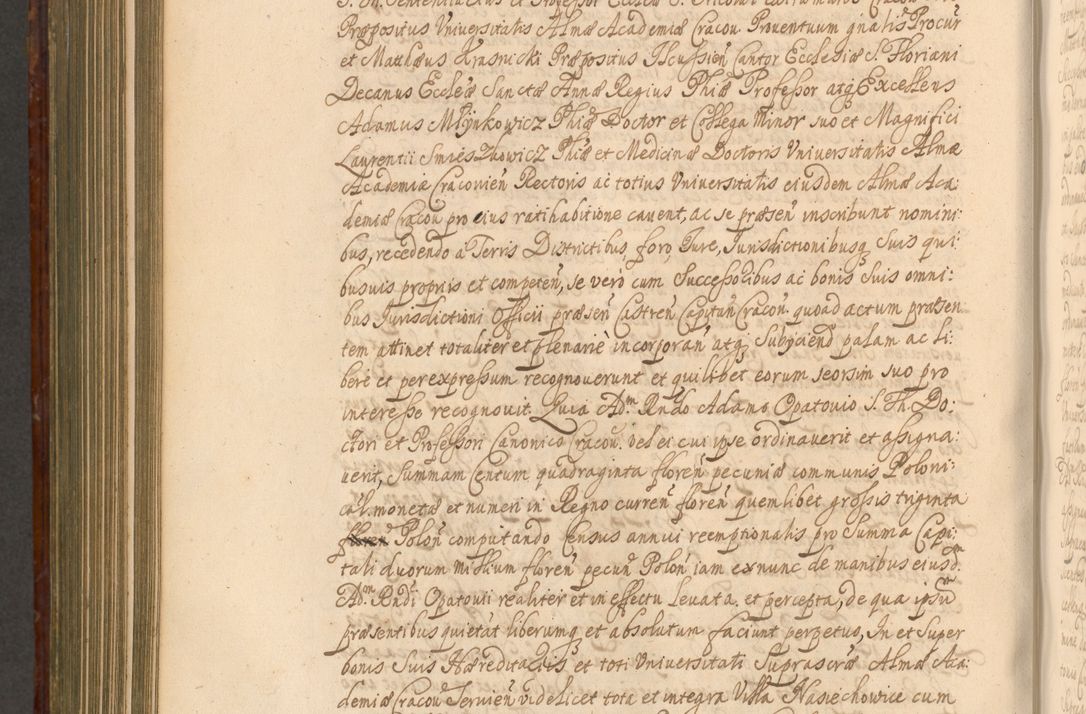 Præpositus Universitatis Almæ Academiæ Cracou Prouentuum gnãlis Procur
et Matthæus Krasnicki Præpositus Cantor Ecclesiæ S. Floriani
Decanus Eccleæ Sanctæ Annæ Regius Phiæ Professor atq Excellens
Adamus Młynkowicz Phiæ Doctor et Collega Minor suo et Magnifici
Laurentii Smieszkowicz Phiæ et Medicinæ Doctoris Universitatis Almæ
Academiæ Cracouień Rectoris ac totius Universitatis eiusdem Almæ Aca:
demiæ Cracou pro eius ratihabitione cauent, ac se præseń inscribunt nomini:
bus, recedendo a Terris Districtibus, foro, Jure, Jurisdictionibusq Suis qui:
busuis proprijs et competeń, se vero cum Successoribus ac bonis Suis omni:
bus Jurisdictioni Officii præseń Castreń Capitań Cracou. quoad actum præsen
tem attinet totaliter et plenariè incorporań atq Subÿciend palam ac Li:
berè et per expressum recognouerunt et quilibet eorum seorsim suo pro
interesse recognouit. Quia Adm Rndo Adamo Opatouio S. Th. Do:
ctori et Professori Canonico Cracou. vel ei cui ipse ordinauerit et assigna:
uerit, Summam Centum quadraginta floreń pecuniæ communis Poloni:
cal. monetæ et numeri in Regno curreń floreń quemlibet grossis triginta
Poloń computando Census annui reemptionalis pro Summa Capi:
tali duorum millium floreń pecuń Poloń iam exnunc de manibus eiusd
Adm Rndi Opatouii realiter et in effectu Leuata et percepta, de qua ipsum
præsentibus quietat liberumq et absolutum faciunt perpetuo, In et Super
bonis Suis Hæreditarÿs et toti Universitati Suprascræ Almæ Aca:
demiæ Cracou Seruień videlicet tota et integra Villa Nasiechowice cum